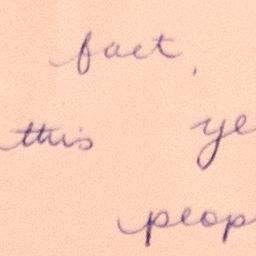 fact,
this ye
peop